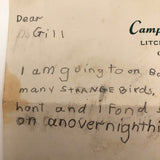 Dear
Gill
Camp
LITC
I am going to on Ba
many STRANGE Birds,
hont and I Fond
on anovernighthi